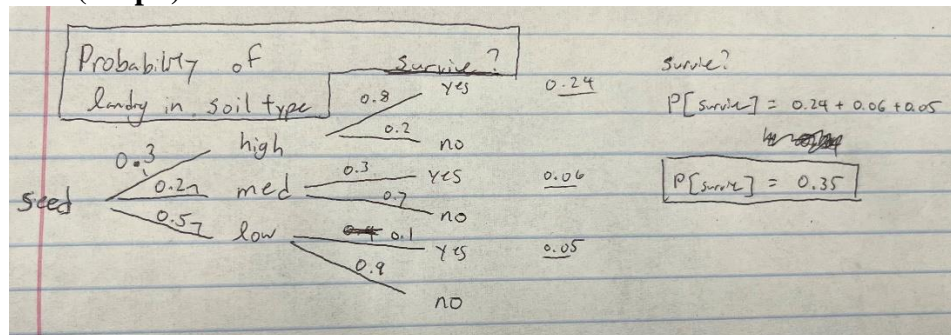 Probability of
landing in soil type
Survive?
seed
0.3 high
0.8 yes 0.24
0.2 no
0.2 med
0.3 yes 0.06
0.7 no
0.5 low
0.1 yes 0.05
0.9 no
Survive?
P[survive] = 0.24 + 0.06 + 0.05
P[survive] = 0.35